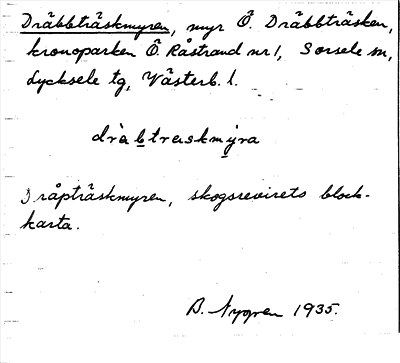 Dräbbträskmyren, myr Ö. Dräbbträsken,
kronoparken Ö Råstrand nr 1, Sorsele sn,
Lycksele tg, Västerb. l.
dràb̲traskmy̲ra
Dråpträskmyren, skogsrevirets block-
karta.
B. Nygren 1935.